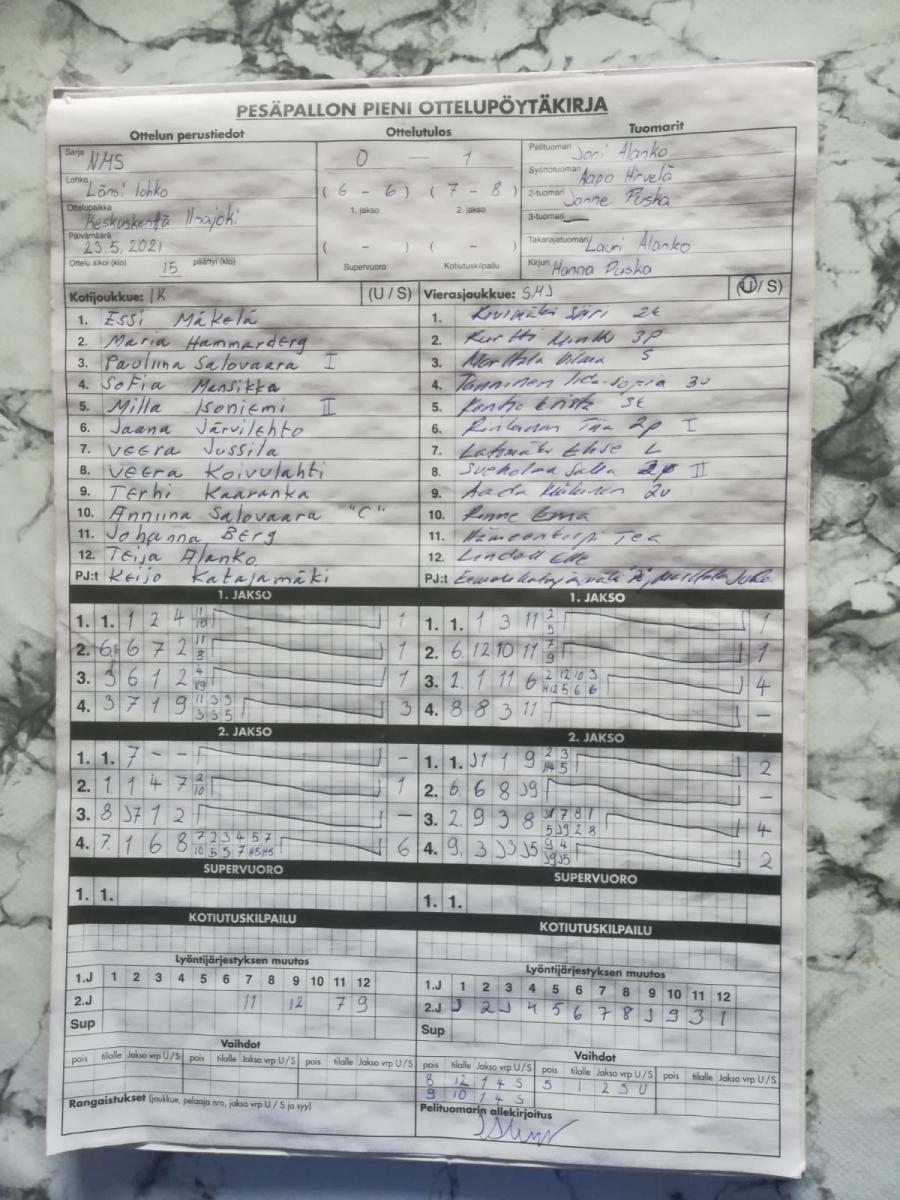 PESÄPALLON PIENI OTTELUPÖYTÄKIRJA
Ottelun perustiedot
Sarja NMS
Lohko Länsi lohko
Ottelupaikka Keskuskenttä Ilmajoki
Päivämäärä 23.5.2021
Ottelu alkoi (klo) 15 päättyi (klo)
Ottelutulos
0 - 1
(6 - 6) (7 - 8)
1. jakso 2. jakso
( - ) ( - )
Supervuoro Kotiutuskilpailu
Tuomarit
Pelituomari Joni Alanko
Syöttötuomari Aapo Hirvelä
2-tuomari Janne Puska
3-tuomari
Takarajatuomari Lauri Alanko
Kirjuri Hanna Puska
Kotijoukkue: IK (U / S)
1. Essi Mäkelä
2. Maria Hammarberg
3. Pauliina Salovaara I
4. Sofia Mansikka
5. Milla Isoniemi II
6. Jaana Järvilehto
7. Veera Jussila
8. Veera Koivulahti
9. Terhi Kaaranka
10. Anniina Salovaara "C"
11. Johanna Berg
12. Teija Alanko
PJ:t Keijo Katajamäki
Vierasjoukkue: SMJ (U / S)
1. 2k
2. 3p
3. Marttala Vilma S
4. Tanninen Iida-Sofia 3v
5. Krista 3k
6. Rintanen Tiia 2p I
7. L
8. II
9. Aada 2v
10. Rinne Ema
11. Tea
12. Lindell Elle
PJ:t
1. JAKSO
1. 1. 1 2 4 11 10 1
2. 6 6 7 2 11 8 1
3. 3 6 1 2 4 V9 1
4. 3 7 1 9 11 3 3 3 3 5 3
2. JAKSO
1. 1. 7 - - -
2. 1 1 4 7 2 10 1
3. 8 J7 1 2 -
4. 7. 1 6 8 7 2 3 4 5 7 10 5 5 7 6
SUPERVUORO
1. 1.
KOTIUTUSKILPAILU
1. JAKSO
1. 1. 1 3 11 2 5 1
2. 6 12 10 11 7 9 1
3. 2. 1 11 6 2 12 10 3 H12 5 6 6 4
4. 8 8 3 11 -
2. JAKSO
1. 1. J1 1 9 2 3 5 2
2. 6 6 8 J9 -
3. 2 9 3 8 J1 7 8 1 5 J9 2 8 4
4. 9. 3 J3 J5 9 4 J9 J5 2
SUPERVUORO
1. 1.
KOTIUTUSKILPAILU
Lyöntijärjestyksen muutos
1.J 1 2 3 4 5 6 7 8 9 10 11 12
2.J 11 12 7 9
Sup
Lyöntijärjestyksen muutos
1.J 1 2 3 4 5 6 7 8 9 10 11 12
2.J J 2 J 4 5 6 7 8 J 9 3 1
Sup
Vaihdot
pois tilalle Jakso vrp U / S pois tilalle Jakso vrp U / S pois tilalle Jakso vrp U / S
Vaihdot
pois tilalle Jakso vrp U / S pois tilalle Jakso vrp U / S pois tilalle Jakso vrp U / S
8 12 1 4 S 5 1 2 3 U
9 10 1 4 S
Rangaistukset (joukkue, pelaaja nro, jakso vrp U / S ja syy)
Pelituomarin allekirjoitus